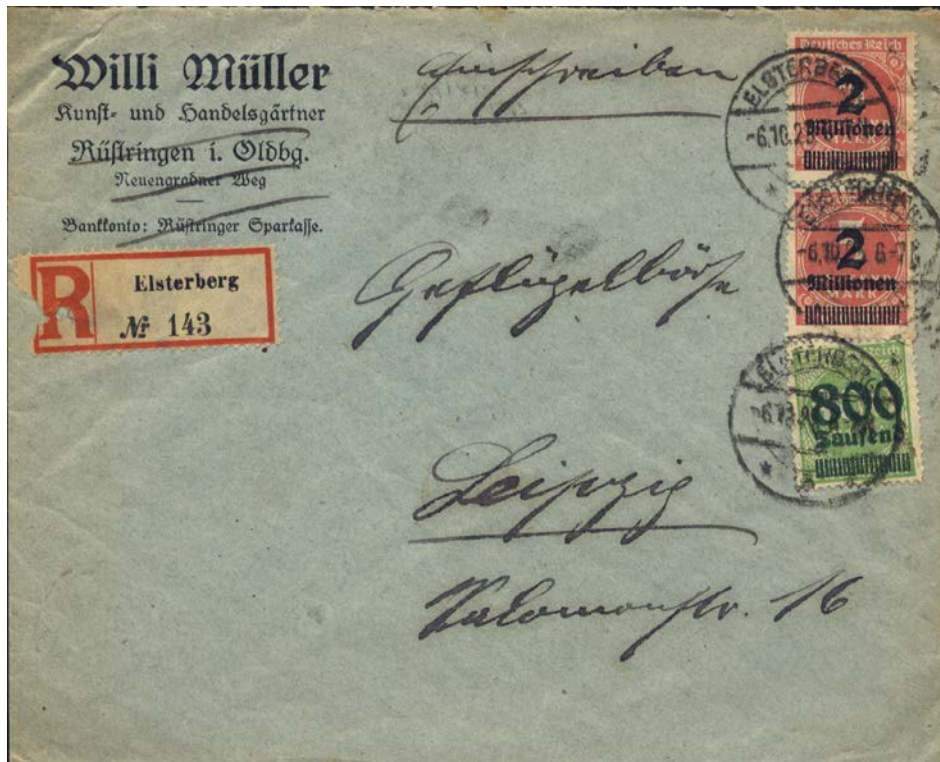 Willi Müller
Kunst- und Handelsgärtner
Rüstringen i. Oldbg.
Neuengrodner Weg
Bankkonto: Rüstringer Sparkasse.
Einschreiben
R
Elsterberg
№ 143
Geflügelbörse
Leipzig
Salomonstr. 16
Deutsches Reich
2
Millionen
ELSTERBERG
-6.10.23
2
Millionen
MARK
-6.10. 6-7
ELSTERBERG
800
Tausend